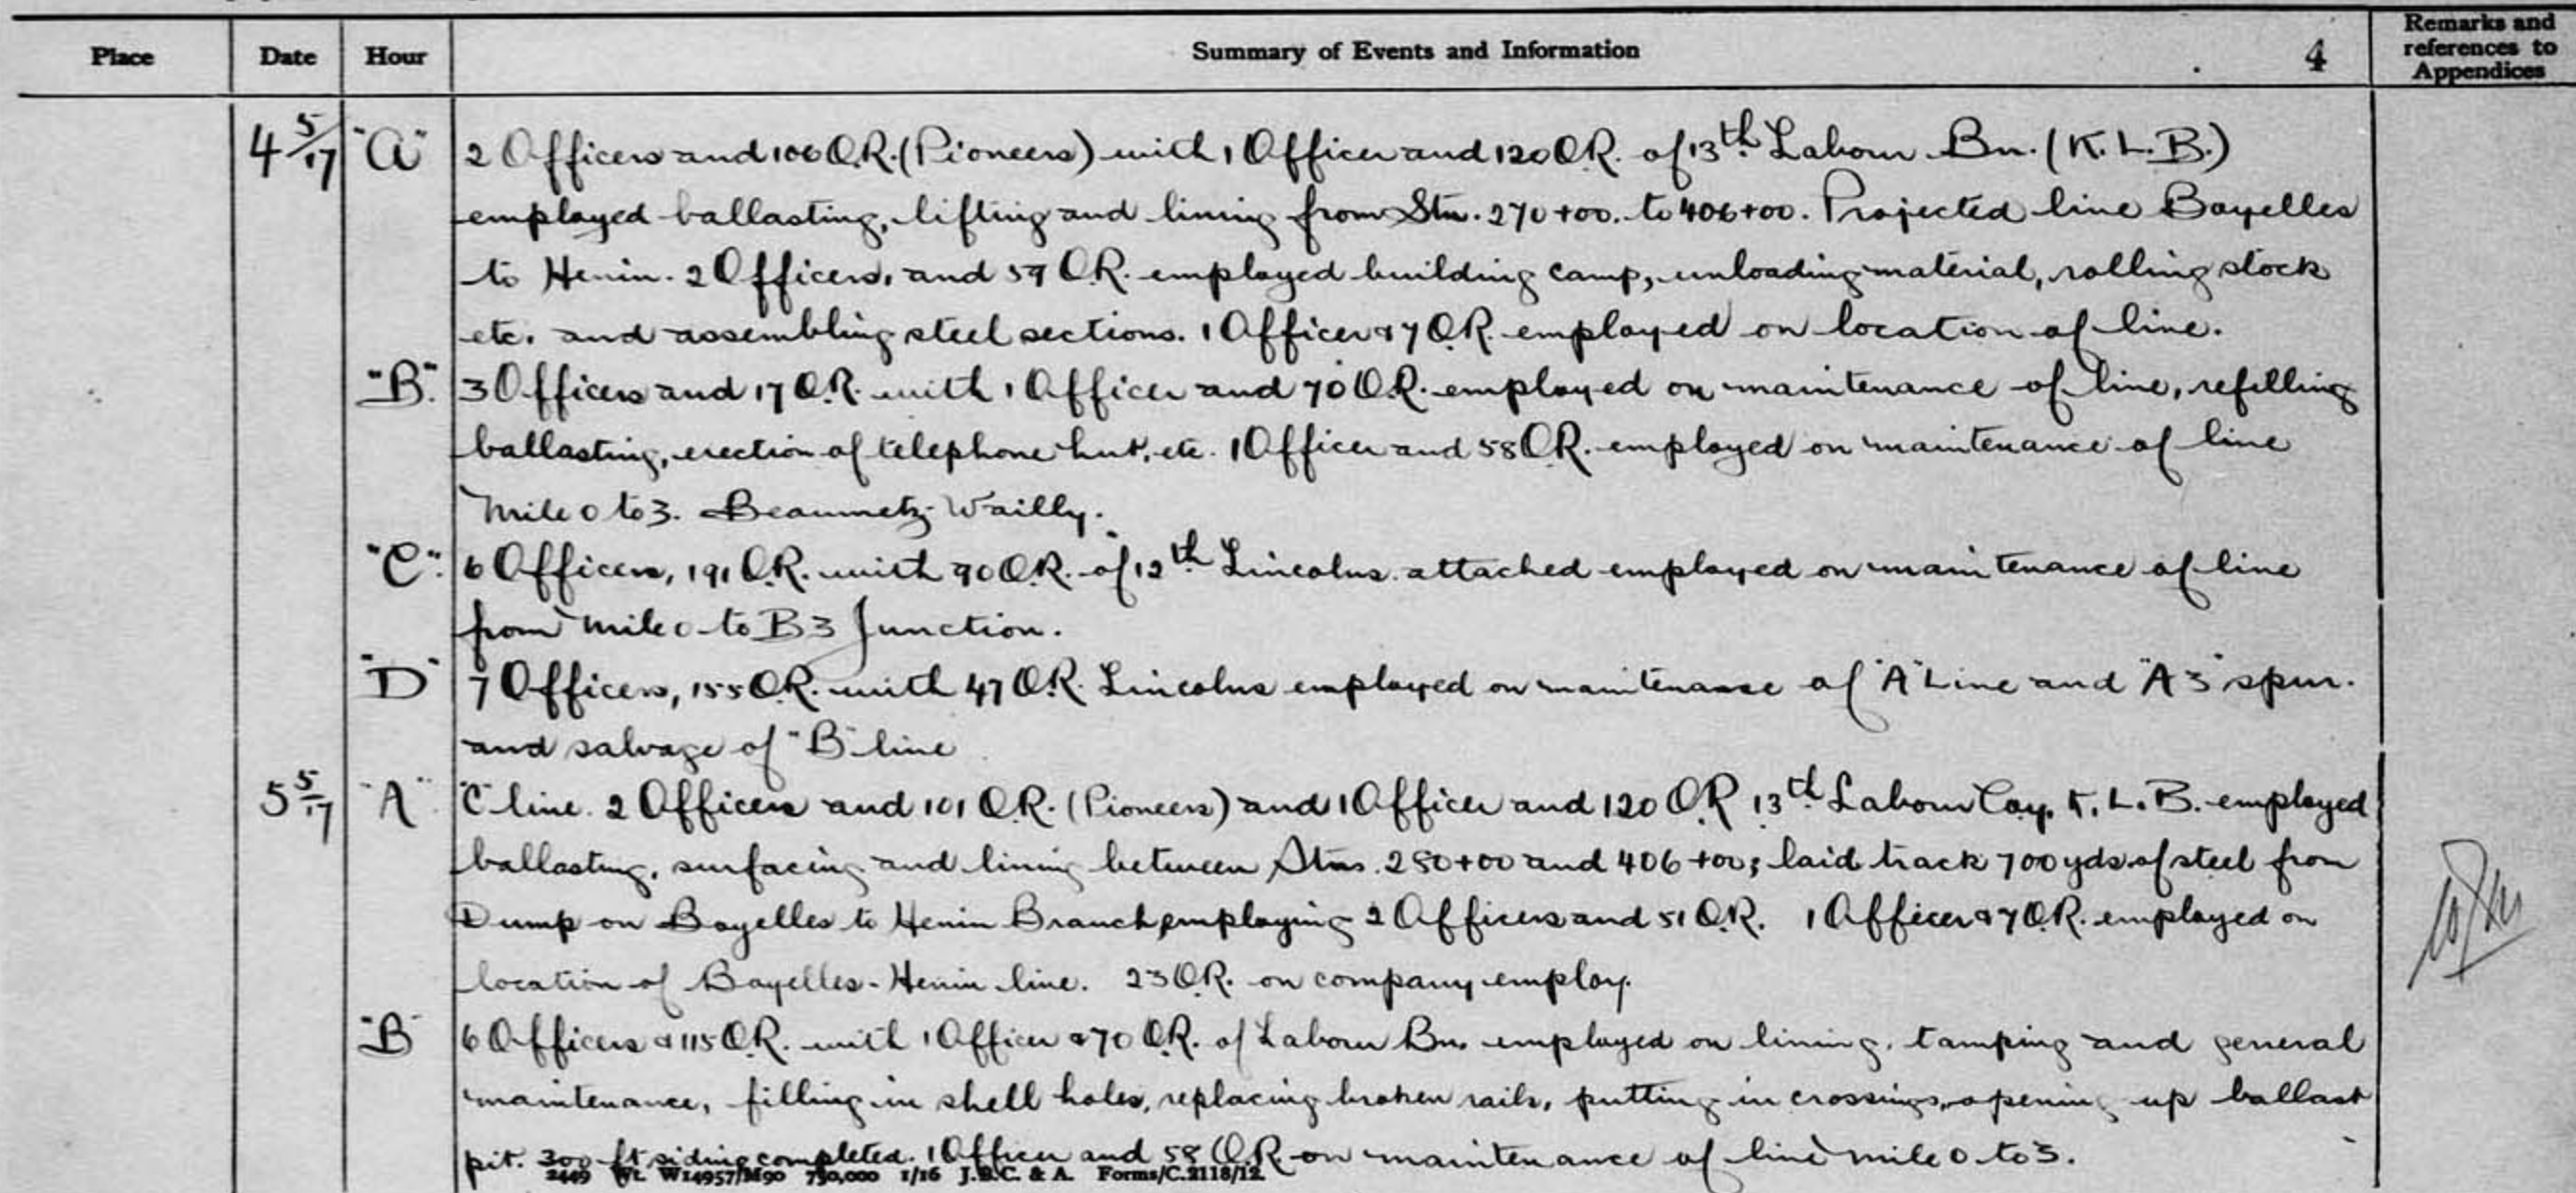 Place Date Hour Summary of Events and Information 4 Remarks and references to Appendices
4 5/17 "A" 2 Officers and 106 O.R. (Pioneers) with 1 Officer and 120 O.R. of 13th Labour Bn. (K.L.B.)
employed ballasting, lifting and lining from Stn. 270+00. to 406+00. Projected line Boyelles
to Henin. 2 Officers, and 59 O.R. employed building camp, unloading material, rolling stock
etc. and assembling steel sections. 1 Officer & 7 O.R. employed on location of line.
"B". 3 Officers and 17 O.R. with 1 Officer and 70 O.R. employed on maintenance of line, refilling
ballasting, erection of telephone hut, etc. 1 Officer and 58 O.R. employed on maintenance of line
Mile 0 to 3. Beaumetz-Wailly.
"C". 6 Officers, 191 O.R. with 90 O.R. of 12th Lincolns. attached employed on maintenance of line
from Mile 0 to B3 Junction.
"D" 7 Officers, 155 O.R. with 47 O.R. Lincolns employed on maintenance of "A" Line and "A3" spur.
and salvage of "B" line
5 5/17 "A" "C" line. 2 Officers and 101 O.R. (Pioneers) and 1 Officer and 120 O.R 13th Labour Coy. K.L.B. employed
ballasting, surfacing and lining between Stns. 280+00 and 406+00; laid track 700 yds of steel from
Dump on Boyelles to Henin Branch, employing 2 Officers and 51 O.R. 1 Officer & 7 O.R. employed on
location of Boyelles-Henin line. 23 O.R. on company employ.
"B" 6 Officers & 115 O.R. with 1 Officer & 70 O.R. of Labour Bn. employed on lining, tamping and general
maintenance, filling in shell holes, replacing broken rails, putting in crossings, opening up ballast
pit. 300 ft siding completed. 1 Officer and 58 O.R on maintenance of line mile 0 to 3.
2449 Wt. W14957/M90 750,000 1/16 J.B.C. & A. Forms/C.2118/12.